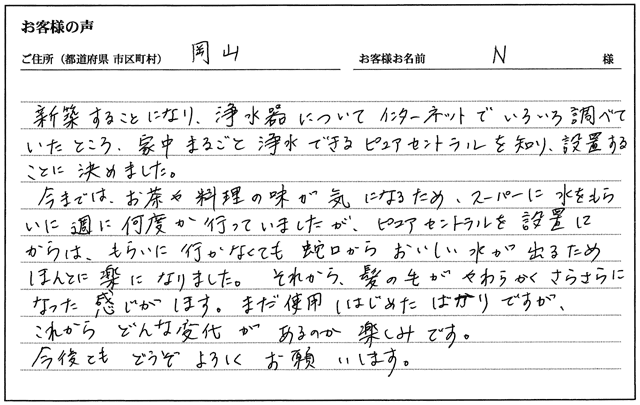 お客様の声
ご住所（都道府県 市区町村） 岡山 お客様お名前 N 様
新築することになり、浄水器について インターネットで いろいろ調べて
いたところ、家中まるごと浄水できるピュアセントラルを知り、設置する
ことに決めました。
今までは、お茶や料理の味が気になるため、スーパーに水をもら
いに週に何度か行っていましたが、ピュアセントラルを設置に
からは、もらいに行かなくても蛇口からおいしい水が出るため
ほんとに楽になりました。それから、髪の毛がやわらかくさらさらに
なった感じがします。まだ使用しはじめたばかりですが、
これからどんな変化があるのか楽しみです。
今後ともどうぞよろしくお願いします。